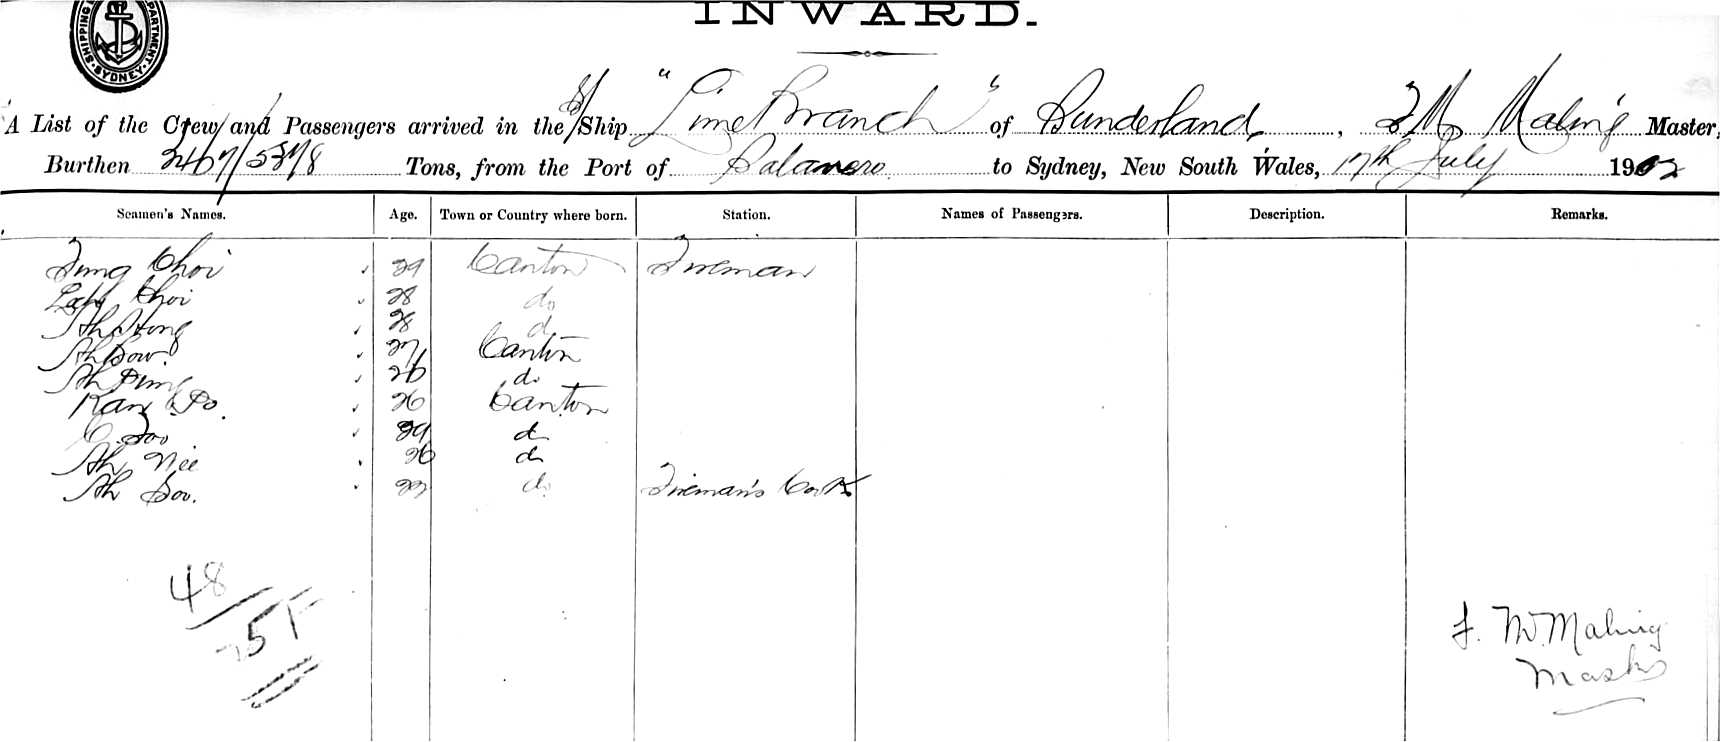 INWARD.
SHIPPING DEPARTMENT SYDNEY
A List of the Crew and Passengers arrived in the S/Ship "Lime Branch" of Sunderland, F W Maling Master,
Burthen 3467/5378 Tons, from the Port of to Sydney, New South Wales, 17th July 1902
Seamen's Names. Age. Town or Country where born. Station. Names of Passengers. Description. Remarks.
Choi 29 Canton Fireman
Choi 28 do
Ah Hong 28 d
Ah Sow. 27 Canton
Ah Ping 26 do
Kan Po. 26 Canton
Foo 29 do
Ah Nee 26 do
Ah Soo. 22 do Fireman's Cook
48
751
F. W. Maling
Master